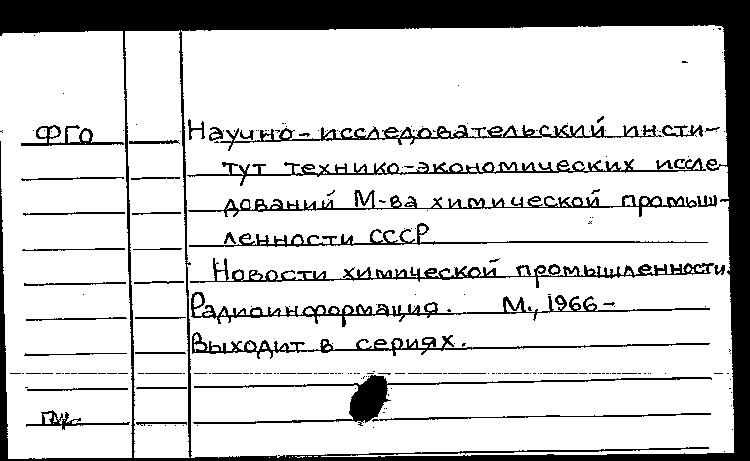 ФГо Научно-исследовательский инсти-
тут технико-экономических иссле-
дований М-ва химической промыш-
ленности СССР
Новости химической промышленности.
Радиоинформация. М., 1966-
Выходит в сериях.